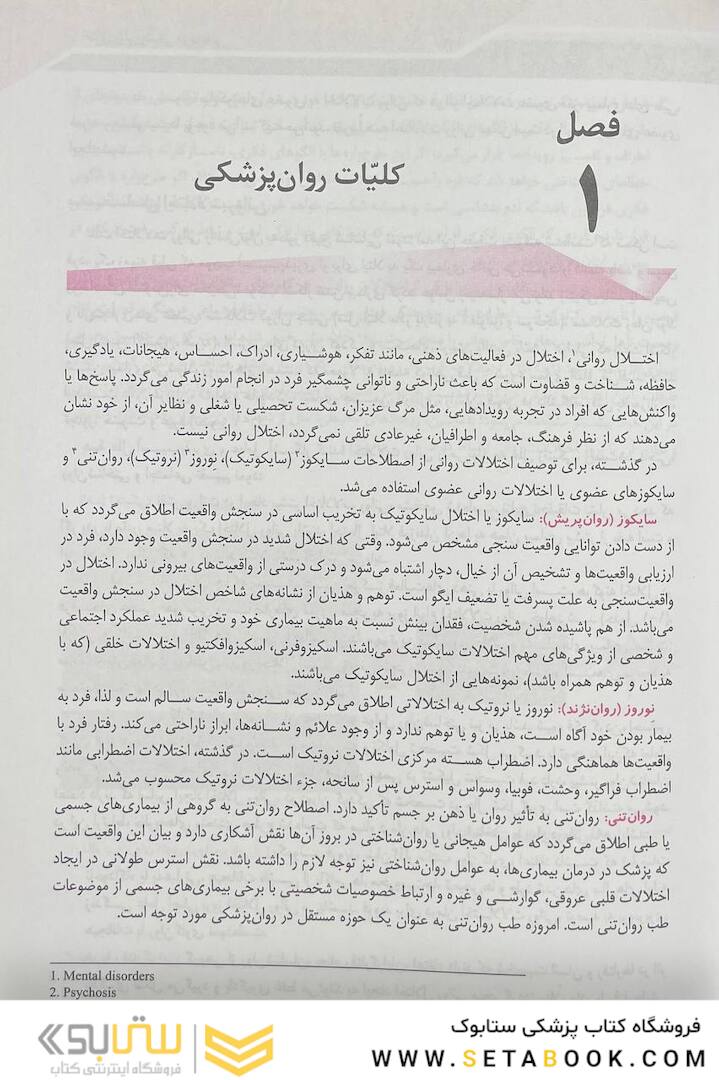 فصل
۱
کلیّات روان‌پزشکی
اختـــلال روانی۱، اختلال در فعالیت‌های ذهنی، مانند تفکر، هوشیاری، ادراک، احساس، هیجانات، یادگیری،
حافظه، شـــناخت و قضاوت است که باعث ناراحتی و ناتوانی چشمگیر فرد در انجام امور زندگی می‌گردد. پاسخ‌ها یا
واکنش‌هایی که افراد در تجربه رویدادهایی، مثل مرگ عزیزان، شکست تحصیلی یا شغلی و نظایر آن، از خود نشان
می‌دهند که از نظر فرهنگ، جامعه و اطرافیان، غیرعادی تلقی نمی‌گردد، اختلال روانی نیست.
در گذشـــته، برای توصیف اختلالات روانی از اصطلاحات ســـایکوز۲ (سایکوتیک)، نوروز۳ (نروتیک)، روان‌تنی۴ و
سایکوزهای عضوی یا اختلالات روانی عضوی استفاده می‌شد.
سایکوز (روان‌پریش): سایکوز یا اختلال سایکوتیک به تخریب اساسی در سنجش واقعیت اطلاق می‌گردد که با
از دست دادن توانایی واقعیت سنجی مشخص می‌شود. وقتی که اختلال شدید در سنجش واقعیت وجود دارد، فرد در
ارزیابی واقعیت‌ها و تشخیص آن از خیال، دچار اشتباه می‌شود و درک درستی از واقعیت‌های بیرونی ندارد. اختلال در
واقعیت‌سنجی به علت پسرفت یا تضعیف ایگو است. توهم و هذیان از نشانه‌های شاخص اختلال در سنجش واقعیت
می‌باشد. از هم پاشیده شدن شخصیت، فقدان بینش نسبت به ماهیت بیماری خود و تخریب شدید عملکرد اجتماعی
و شخصی از ویژگی‌های مهم اختلالات سایکوتیک می‌باشند. اسکیزوفرنی، اسکیزوافکتیو و اختلالات خلقی (که با
هذیان و توهم همراه باشد)، نمونه‌هایی از اختلال سایکوتیک می‌باشند.
نوروز (روان‌نژند): نوروز یا نروتیک به اختلالاتی اطلاق می‌گردد که ســـنجش واقعیت ســـالم است و لذا، فرد به
بیمار بودن خود آگاه اســـت، هذیان و یا توهم ندارد و از وجود علائم و نشـــانه‌ها، ابراز ناراحتی می‌کند. رفتار فرد با
واقعیت‌ها هماهنگی دارد. اضطراب هســـته مرکزی اختلالات نروتیک اســـت. در گذشته، اختلالات اضطرابی مانند
اضطراب فراگیر، وحشت، فوبیا، وسواس و استرس پس از سانحه، جزء اختلالات نروتیک محسوب می‌شد.
روان‌تنی: روان‌تنی به تأثیر روان یا ذهن بر جسم تأکید دارد. اصطلاح روان‌تنی به گروهی از بیماری‌های جسمی
یا طبی اطلاق می‌گردد که عوامل هیجانی یا روان‌شناختی در بروز آن‌ها نقش آشکاری دارد و بیان این واقعیت است
که پزشک در درمان بیماری‌ها، به عوامل روان‌شناختی نیز توجه لازم را داشته باشد. نقش استرس طولانی در ایجاد
اختلالات قلبی عروقی، گوارشـــی و غیره و ارتباط خصوصیات شخصیتی با برخی بیماری‌های جسمی از موضوعات
طب روان‌تنی است. امروزه طب روان‌تنی به عنوان یک حوزه مستقل در روان‌پزشکی مورد توجه است.
1. Mental disorders
2. Psychosis
فروشگاه کتاب پزشکی ستابوک
WWW.SETABOOK.COM
ستابوک
فروشگاه اینترنتی کتاب